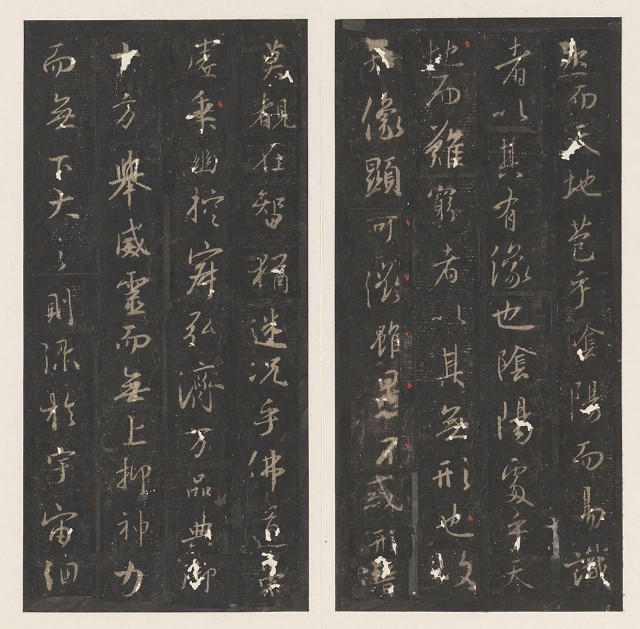 然而天地苞乎陰陽而易識
者以其有像也陰陽處乎天
地而難窮者以其無形也故
像顯可徵雖愚不惑形潛
莫覩在智猶迷況乎佛道崇
虛乘幽控寂弘濟万品典御
十方舉威靈而無上抑神力
而無下大之則彌於宇宙細